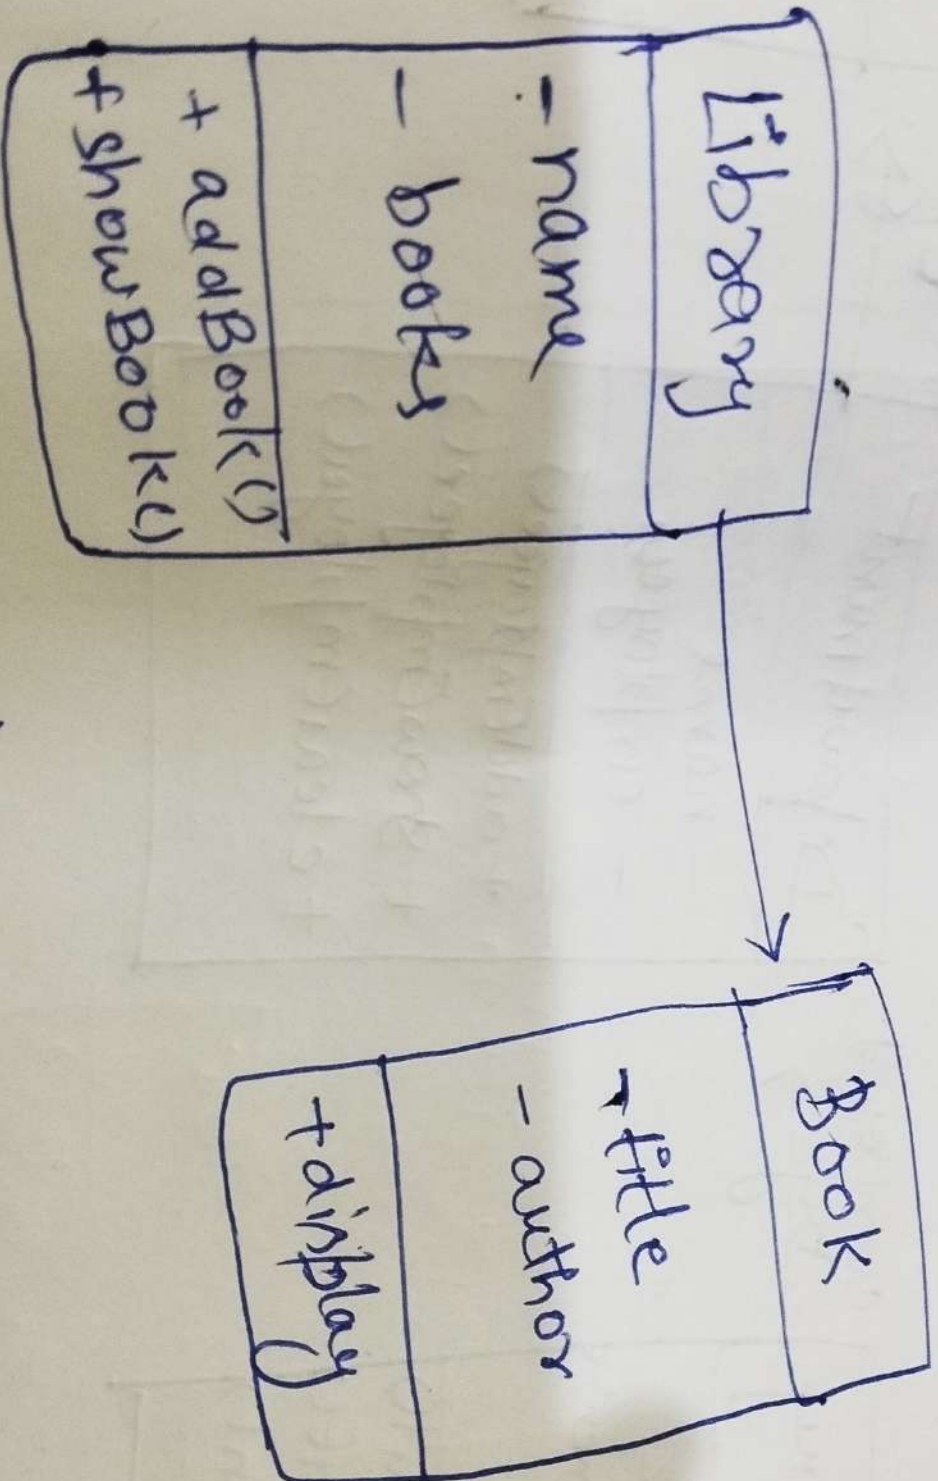 Library
- name
- books
+ addBook()
+ showBook()
Book
- title
- author
+ display